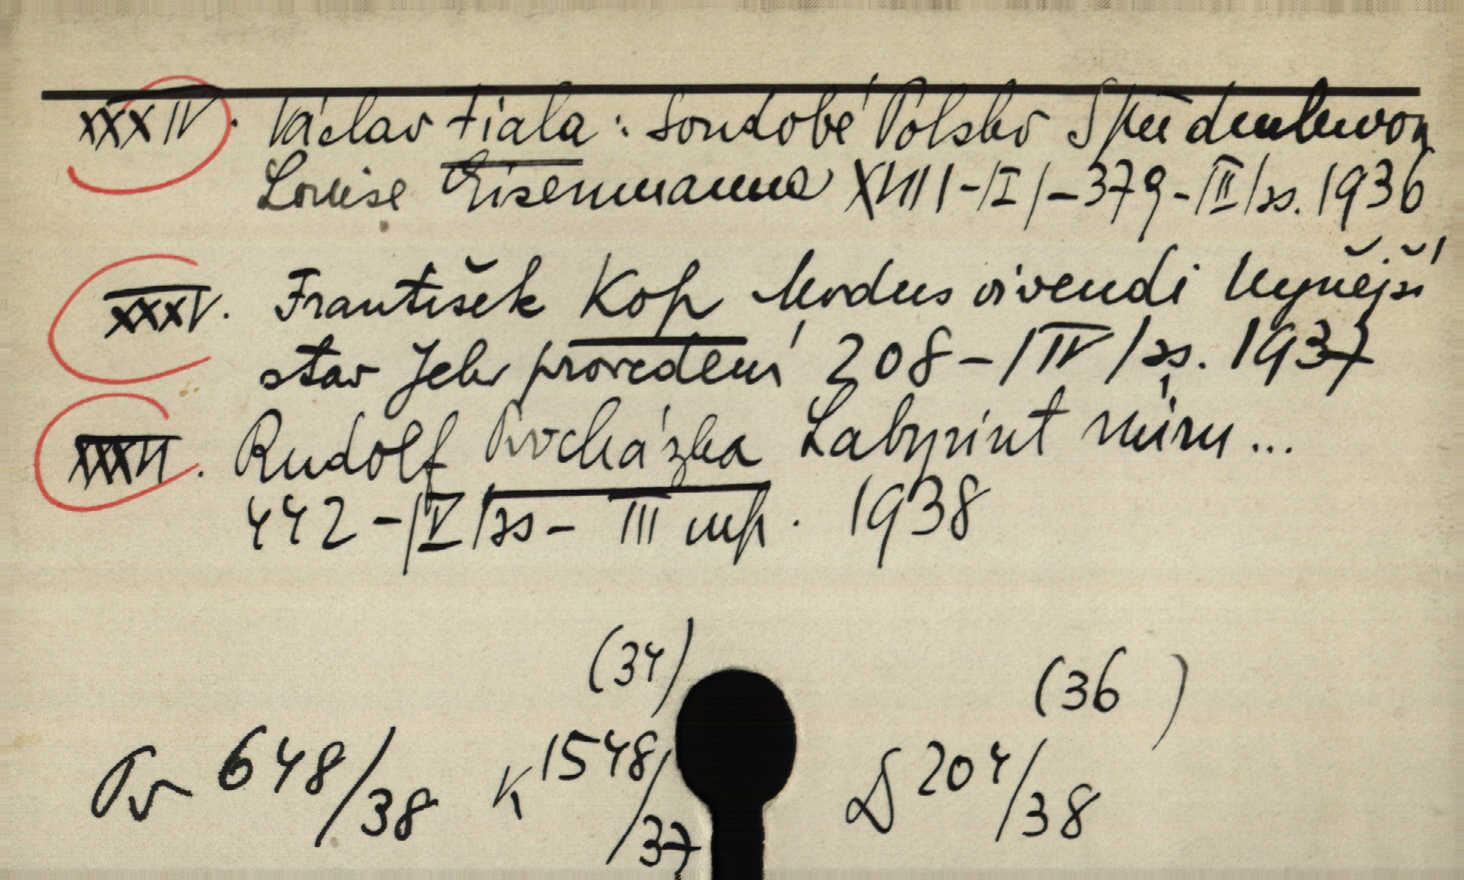 XXXIV. Václav Fiala: Soudobé Polsko S předmluvou
Louise Eisenmanna XVIII-/I/-379-/II/ss. 1936
XXXV. František Kop Modus vivendi Nynější
stav Jeho provedení 208-/IV/ss. 1937
XXXVI. Rudolf Procházka Labyrint míru...
442-/V/ss- III mp. 1938
(34)
(36)
Pr 648/38 K 1548/37 D 204/38